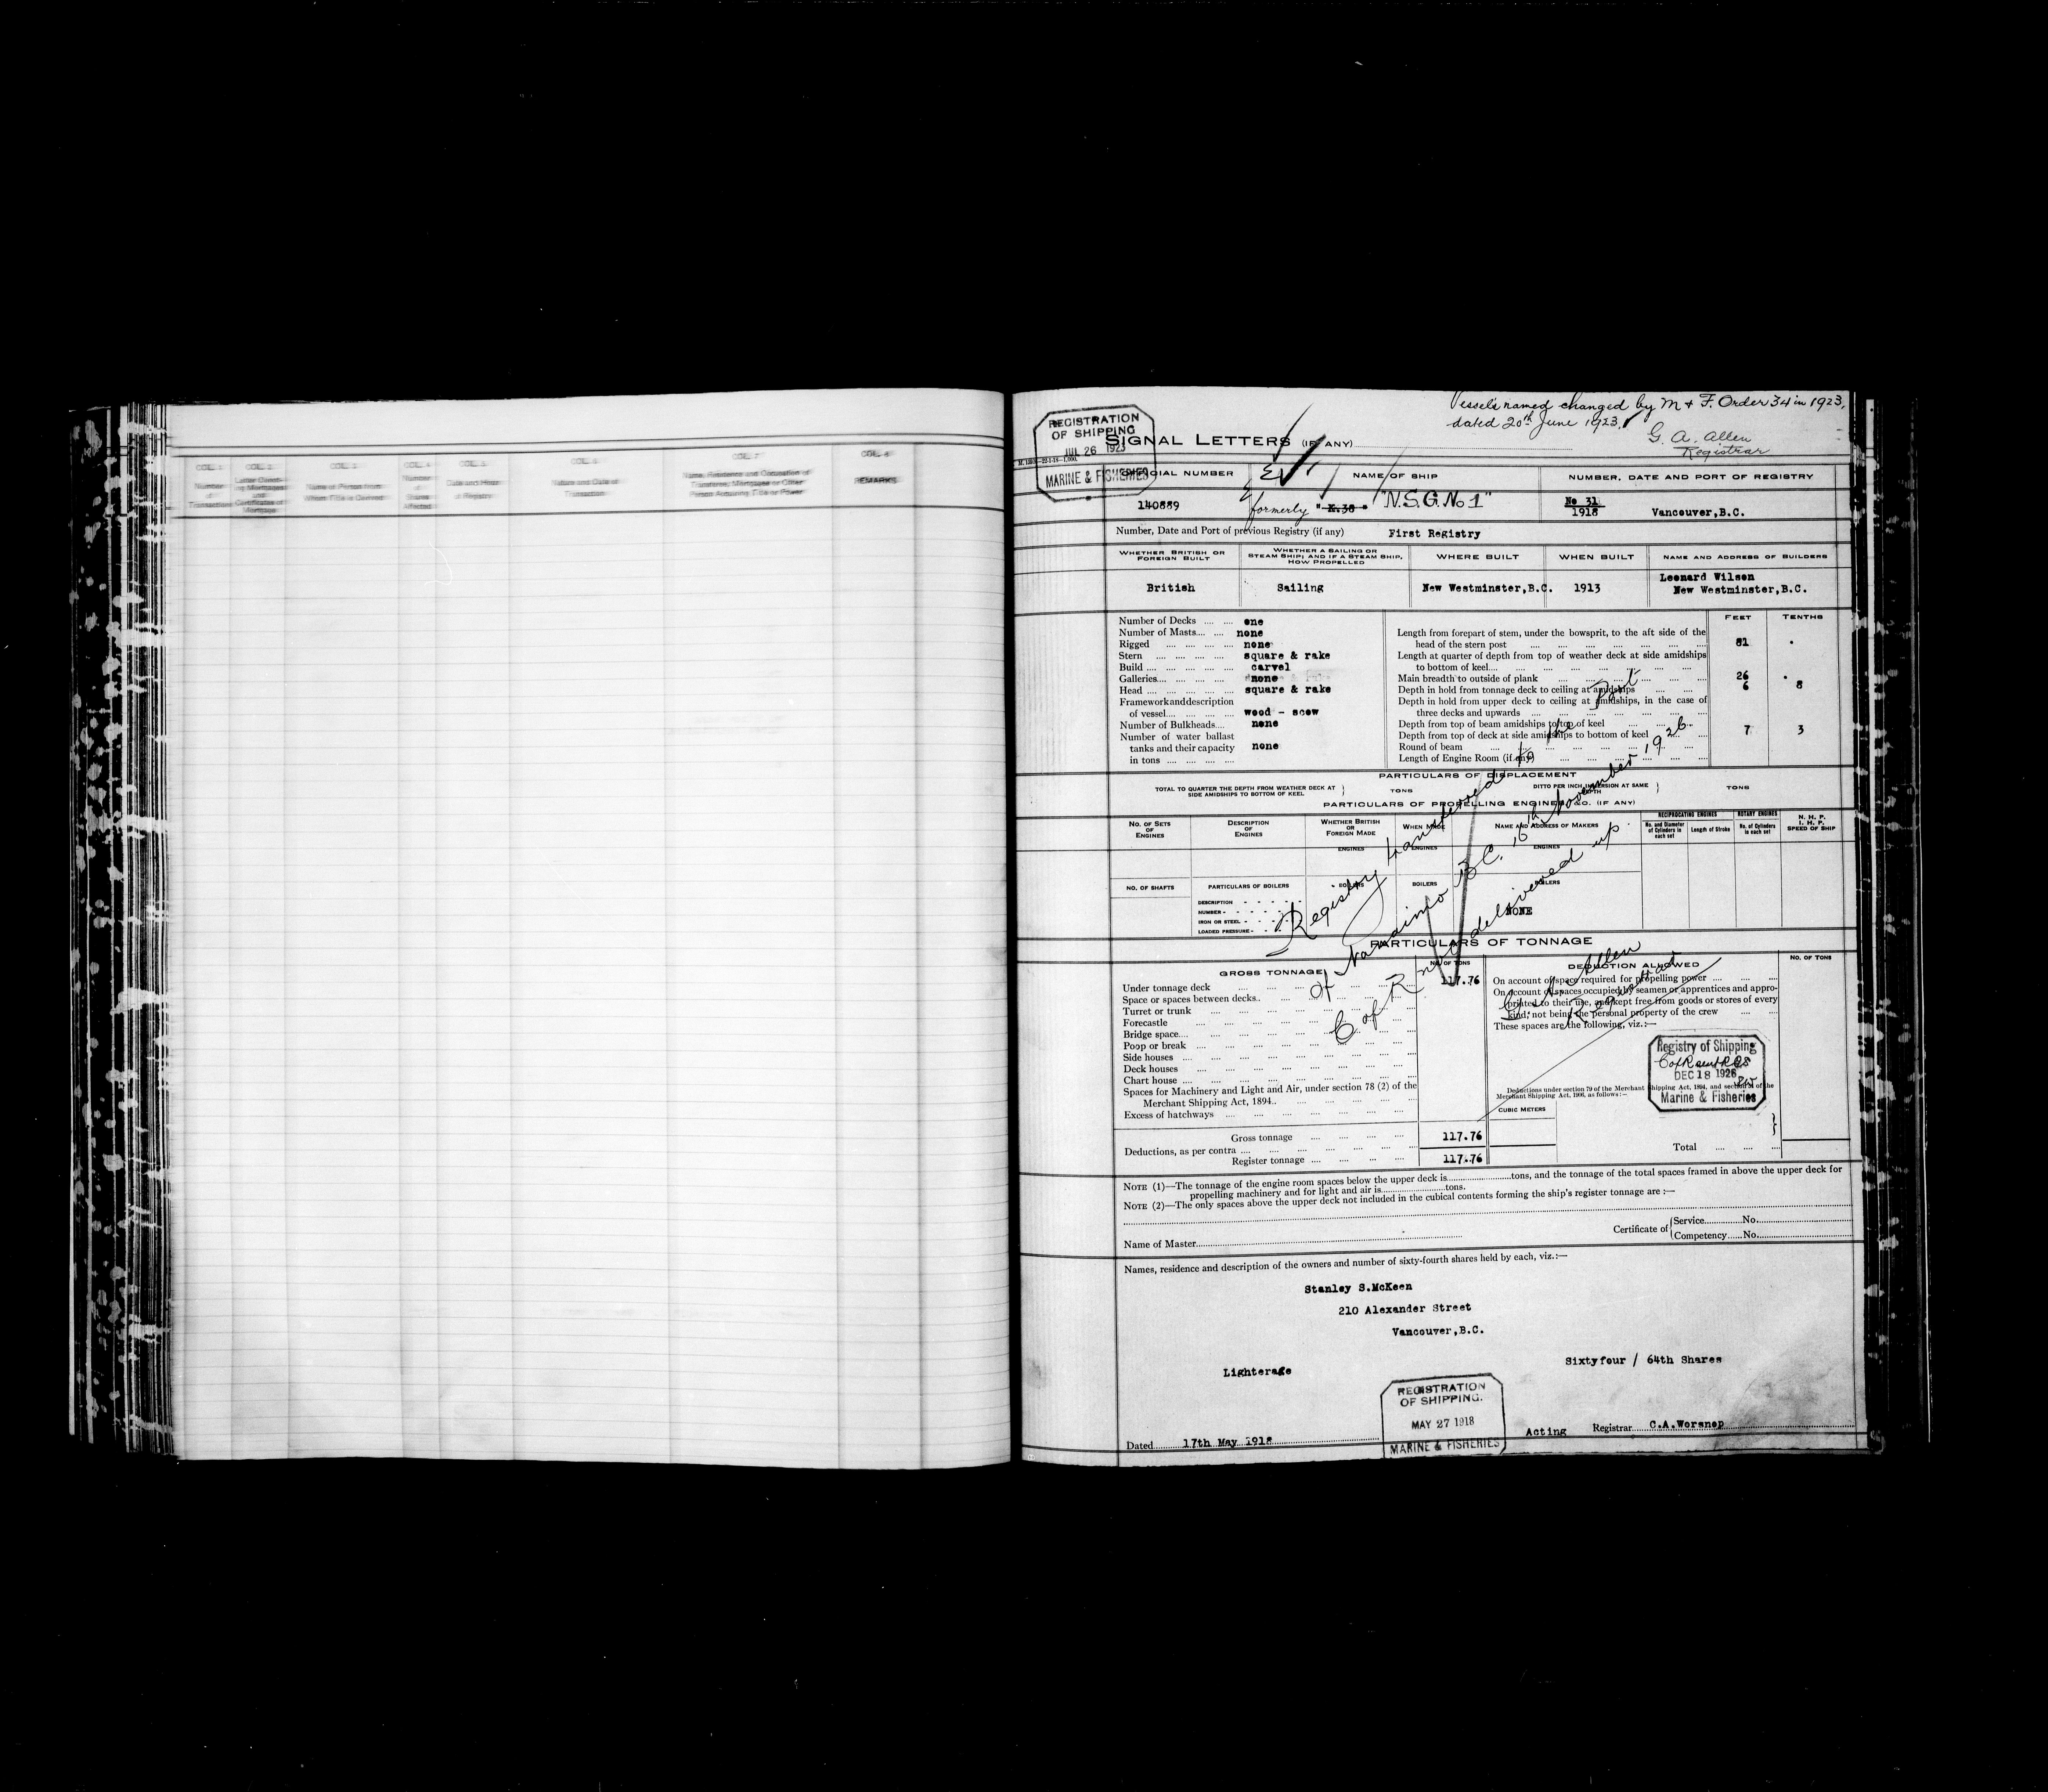 COL. 1
Number
of
Transaction
COL. 2
Letter Denot-
ing Mortgages
and
Certificates of
Mortgage
COL. 3
Name of Person from
Whom Title is Derived
COL. 4
Number
of
Shares
Affected
COL. 5
Date and Hour
of Registry
COL. 6
Nature and Date of
Transaction
COL. 7
Name, Residence and Occupation of
Transferee, Mortgagee or Other
Person Acquiring Title or Power
COL. 8
REMARKS
Vessel's named changed by M & F. Order 34 in 1923,
dated 20th June 1923.
G. A. Allen
Registrar
REGISTRATION
OF SHIPPING
JUL 26 1923
MARINE & FISHERIES
SIGNAL LETTERS (IF ANY)
OFFICIAL NUMBER
NAME OF SHIP
NUMBER, DATE AND PORT OF REGISTRY
140889
formerly "K.38" "N.S.G. No 1"
No 31
1918
Vancouver,B.C.
Number, Date and Port of previous Registry (if any) First Registry
WHETHER BRITISH OR
FOREIGN BUILT
WHETHER A SAILING OR
STEAM SHIP; AND IF A STEAM SHIP,
HOW PROPELLED
WHERE BUILT
WHEN BUILT
NAME AND ADDRESS OF BUILDERS
British
Sailing
New Westminster,B.C.
1913
Leonard Wilson
New Westminster,B.C.
Number of Decks .... .... one
Number of Masts.... .... none
Rigged .... .... .... .... none
Stern .... .... .... .... square & rake
Build .... .... .... .... .... carvel
Galleries.... .... .... .... none
Head .... .... .... .... .... square & rake
Framework and description
of vessel.... .... .... .... wood - scow
Number of Bulkheads.... none
Number of water ballast
tanks and their capacity none
in tons .... .... .... ....
FEET
TENTHS
Length from forepart of stem, under the bowsprit, to the aft side of the
head of the stern post 81 .
Length at quarter of depth from top of weather deck at side amidships
to bottom of keel....
Main breadth to outside of plank 26 .
Depth in hold from tonnage deck to ceiling at amidships 6 8
Depth in hold from upper deck to ceiling at amidships, in the case of
three decks and upwards
Depth from top of beam amidships to top of keel
Depth from top of deck at side amidships to bottom of keel 7 3
Round of beam
Length of Engine Room (if any)
PARTICULARS OF DISPLACEMENT
TOTAL TO QUARTER THE DEPTH FROM WEATHER DECK AT
SIDE AMIDSHIPS TO BOTTOM OF KEEL
TONS
DITTO PER INCH IMMERSION AT SAME
DEPTH
TONS
PARTICULARS OF PROPELLING ENGINES, &C. (IF ANY)
NO. OF SETS
OF
ENGINES
DESCRIPTION
OF
ENGINES
WHETHER BRITISH
OR
FOREIGN MADE
WHEN MADE
NAME AND ADDRESS OF MAKERS
RECIPROCATING ENGINES
No. and Diameter
of Cylinders in
each set
Length of Stroke
ROTARY ENGINES
No. of Cylinders
in each set
N. H. P.
I. H. P.
SPEED OF SHIP
ENGINES
ENGINES
ENGINES
NO. OF SHAFTS
PARTICULARS OF BOILERS
BOILERS
BOILERS
BOILERS
DESCRIPTION
NUMBER
IRON OR STEEL
LOADED PRESSURE
NONE
Registry transferred to the Port
of Nanaimo B.C. 16th November 1926.
C of R not delivered up.
G. A. Allen
Registrar
PARTICULARS OF TONNAGE
GROSS TONNAGE
NO. OF TONS
DEDUCTION ALLOWED
NO. OF TONS
Under tonnage deck 117.76
Space or spaces between decks..
Turret or trunk
Forecastle
Bridge space....
Poop or break
Side houses
Deck houses
Chart house
Spaces for Machinery and Light and Air, under section 78 (2) of the
Merchant Shipping Act, 1894..
Excess of hatchways
On account of space required for propelling power
On account of spaces occupied by seamen or apprentices and appro-
priated to their use, and kept free from goods or stores of every
kind, not being the personal property of the crew
These spaces are the following, viz.:—
Registry of Shipping
DEC 18 1926
Marine & Fisheries
Deductions under section 79 of the Merchant Shipping Act, 1894, and section 54 of the
Merchant Shipping Act, 1906, as follows:—
CUBIC METERS
Gross tonnage 117.76
Deductions, as per contra
Register tonnage 117.76
Total
NOTE (1)—The tonnage of the engine room spaces below the upper deck is..........tons, and the tonnage of the total spaces framed in above the upper deck for
propelling machinery and for light and air is..........tons.
NOTE (2)—The only spaces above the upper deck not included in the cubical contents forming the ship's register tonnage are :—
Name of Master
Certificate of
Service..........No.
Competency......No.
Names, residence and description of the owners and number of sixty-fourth shares held by each, viz.:—
Stanley S.McKeen
210 Alexander Street
Vancouver,B.C.
Lighterage
Sixtyfour / 64th Shares
REGISTRATION
OF SHIPPING.
MAY 27 1918
MARINE & FISHERIES
Dated 17th May 1918
Acting Registrar C.A.Worsnop